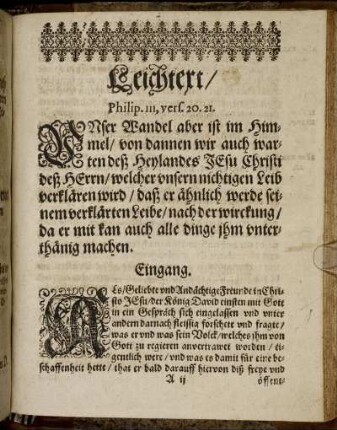 Leichtext/
Philip. III, vers. 20. 21.
UNser Wandel aber ist im Him-
mel/ von dannen wir auch war-
ten deß Heylandes JEsu Christi
deß HErrn/ welcher unsern nichtigen Leib
verklären wird/ daß er ähnlich werde sei-
nem verklärten Leibe/ nach der wirckung/
da er mit kan auch alle dinge jhm vnter-
thänig machen.
Eingang.
ALs/ Geliebte vnd Andächtige Freunde in Chri-
sto JESu/ der König David einsten mit Gott
in ein Gespräch sich eingelassen vnd vnter
andern darnach fleissig forschett vnd fragte/
was er vnd was sein Volck/ welches ihm von
Gott zu regieren anvertrawet worden/ ei-
gentlich were/ vnd was es damit für eine be-
schaffenheit hette/ that er bald darauff hiervon diß freye vnd
A ij
öffent-